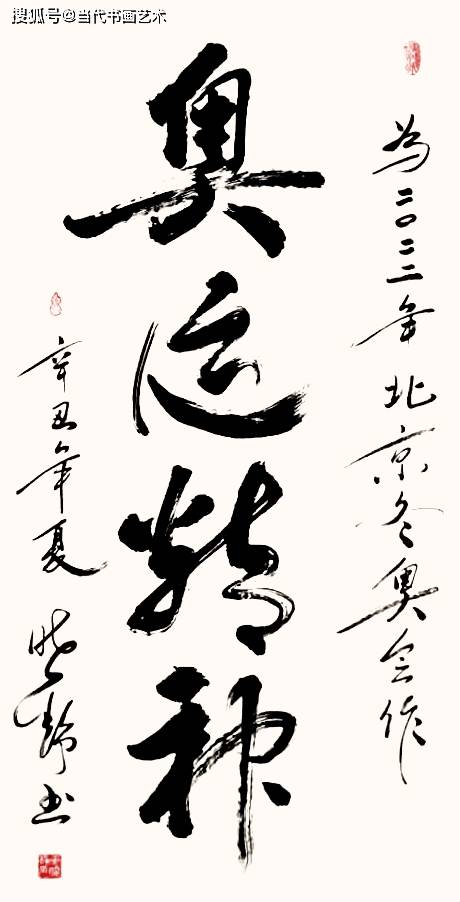 搜狐号@当代书画艺术
为二〇二二年北京冬奥会作
奥运精神
辛丑年夏
静书